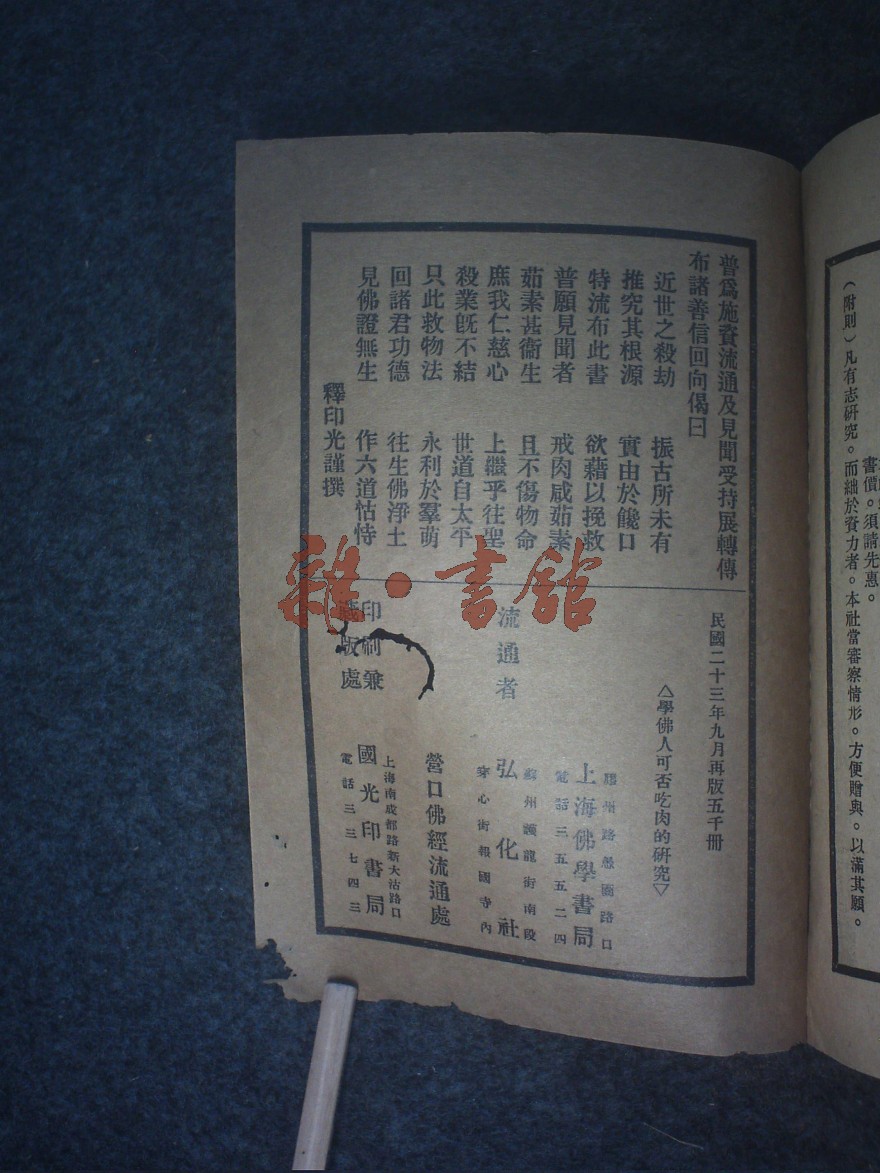 書價。須請先惠。
（附則）凡有志研究。而絀於資力者。本社當審察情形。方便贈與。以滿其願。
普爲施資流通及見聞受持展轉傳
布諸善信回向偈曰
近世之殺劫　振古所未有
推究其根源　實由於饞口
特流布此書　欲藉以挽救
普願見聞者　戒肉咸茹素
茹素甚衞生　且不傷物命
庶我仁慈心　上繼乎往聖
殺業旣不結　世道自太平
只此救物法　永利於羣萌
回諸君功德　往生佛淨土
見佛證無生　作六道怙恃
釋印光謹撰
民國二十三年九月再版五千冊
△學佛人可否吃肉的研究▽
流通者
膠州路愚園路口
上海佛學書局
電話三五五二四
蘇州護龍街南段
弘化社
穿心街報國寺內
營口佛經流通處
印刷兼
藏版處
上海南成都路新大沽路口
國光印書局
電話三三七四三
雜·書館